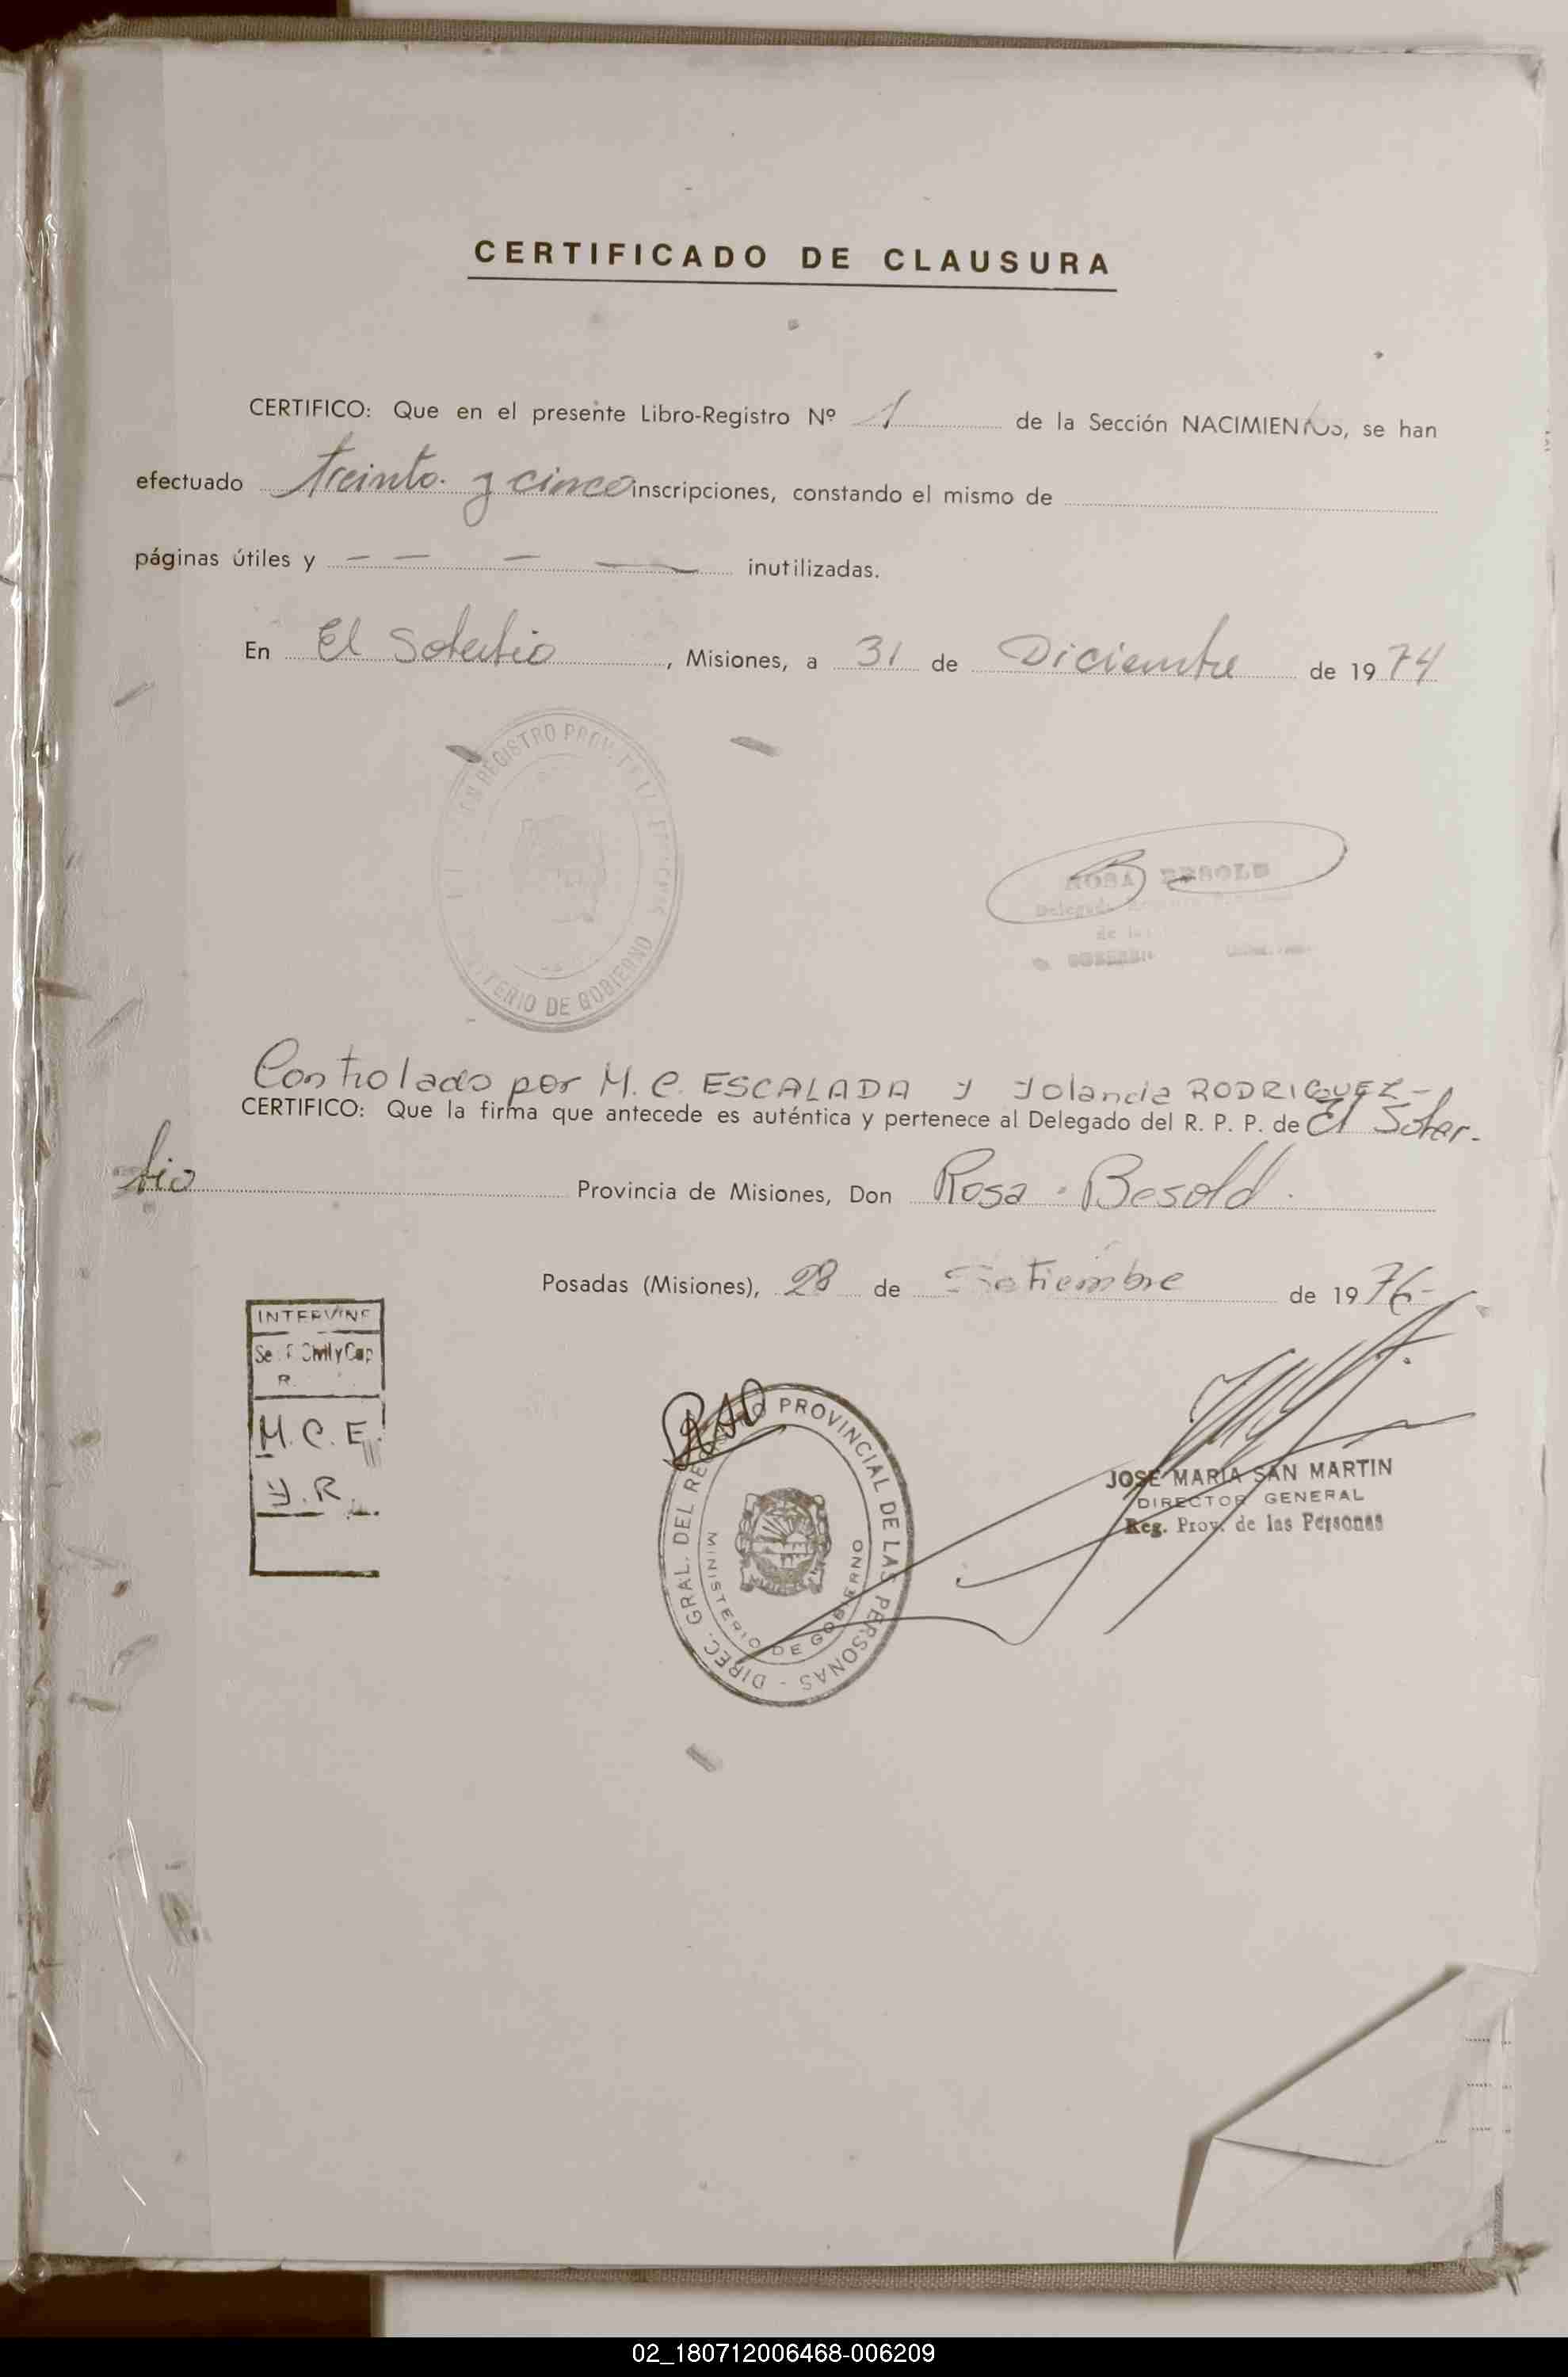 CERTIFICADO DE CLAUSURA
CERTIFICO: Que en el presente Libro-Registro Nº 1 de la Sección NACIMIENTOS, se han
efectuado treinta y cinco inscripciones, constando el mismo de
páginas útiles y — — — — inutilizadas.
En El Soberbio, Misiones, a 31 de Diciembre de 1974
REGISTRO PROV.
MINISTERIO DE GOBIERNO
ROSA BESOLD
Controlado por M. C. ESCALADA y Yolanda RODRIGUEZ-
CERTIFICO: Que la firma que antecede es auténtica y pertenece al Delegado del R. P. P. de El Sober-
bio Provincia de Misiones, Don Rosa Besold.
Posadas (Misiones), 28 de Setiembre de 1976-
INTERVINE
Civil y Cap
R.
M.C.E.
Y.R.
DIREC. GRAL. DEL REGISTRO PROVINCIAL DE LAS PERSONAS -
MINISTERIO DE GOBIERNO
JOSE MARIA SAN MARTIN
DIRECTOR GENERAL
Reg. Prov. de las Personas
02_180712006468-006209